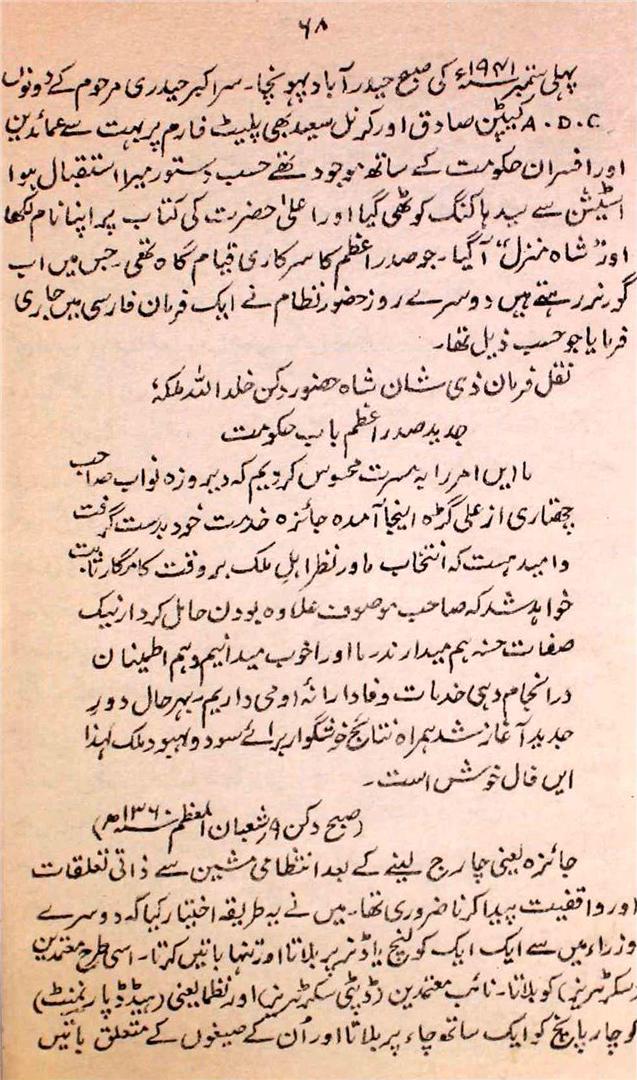 ۶۸
پہلی ستمبر ۱۹۴۱ء کی صبح حیدرآباد پہونچا۔ سر اکبر حیدری مرحوم کے دونوں
A.D.C کیپٹن صادق اور کرنل سعید بھی پلیٹ فارم پر بہت سے عمائدین
اور افسران حکومت کے ساتھ موجود تھے حسب دستور میرا استقبال ہوا
اسٹیشن سے سیدہا کنگ کوٹھی گیا اور اعلیٰ حضرت کی کتاب پر اپنا نام لکھا
اور "شاہ منزل" آگیا۔ جو صدر اعظم کا سرکاری قیام گاہ تھی۔ جس میں اب
گورنر رہتے ہیں دوسرے روز حضور نظام نے ایک فرمان فارسی میں جاری
فرمایا جو حسب ذیل تھا۔
نقل فرمان ذی شان شاہ حضور دکن خلد اللہ ملکہٗ
جدید صدر اعظم باب حکومت
ما ایں امر را بہ مسرت محسوس کردیم کہ دیروزہ نواب صاحب
چھتاری از علی گڑہ اینجا آمدہ جائزہ خدمت خود بدست گرفت
و امید ہست کہ انتخاب ما در نظر اہلِ ملک بر وقت کامگار ثابت
خواہد شد کہ صاحب موصوف علاوہ بودن حامل کردار نیک
صفات حسنہ ہم میدارند و ما اورا خوب میدانیم و ہم اطینان
در انجام دہی خدمات وفادارانہ او می داریم۔ بہرحال دورِ
جدید آغاز شد ہمراہ نتائج خوشگوار برائے سود و بہبود ملک لہذا
ایں فال خوش است۔
(صبح دکن ۹ رشعبان المعظم ۱۳۶۰ھ)
جائزہ یعنی چارج لینے کے بعد انتظامی مشین سے ذاتی تعلقات
اور واقفیت پیدا کرنا ضروری تھا۔ میں نے یہ طریقہ اختیار کیا کہ دوسرے
وزراء میں سے ایک ایک کو لنچ یا ڈنر پر بلاتا اور تنہا باتیں کرتا۔ اسی طرح معتمدین
(سکرٹریز) کو بلاتا۔ نائب معتمدین (ڈپٹی سکرٹریز) اور نظما یعنی (ہیڈ ڈپارٹمنٹ)
کو چار پانچ کو ایک ساتھ چاء پر بلاتا اور اُن کے صیغوں کے متعلق باتیں